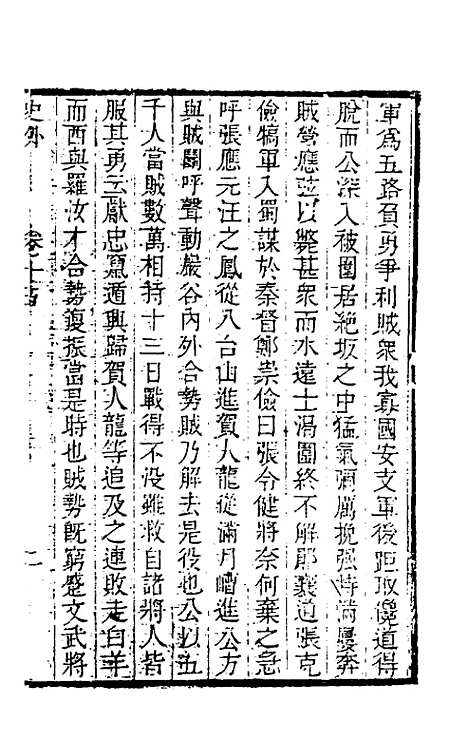 軍為五路負勇爭利賊衆我寡國安支軍後距取儳道得
脫而公深入被圍居絶坂之中猛氣彌厲挽强持滿屢奔
賊營應弦以斃甚衆而水遠士渴圍終不解鄖襄道張克
儉犒軍入蜀謀於秦督鄭崇儉曰張令健將奈何棄之急
呼張應元汪之鳳從八台山進賀人龍從滿月嶆進公方
與賊鬭呼聲動巖谷内外合勢賊乃解去是役也公以五
千人當賊數萬相持十三日戰得不没雖救自諸將人皆
服其勇云獻忠竄遁興歸賀人龍等追及之連敗走白羊
而西與羅汝才合勢復振當是時也賊勢旣窮蹙文武將
史外
卷十
二